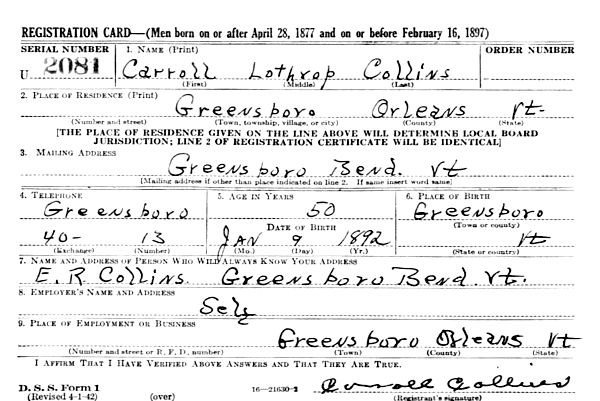 REGISTRATION CARD—(Men born on or after April 28, 1877 and on or before February 16, 1897)
SERIAL NUMBER 1. NAME (Print) ORDER NUMBER
U 2081 Carroll Lothrop Collins
(First) (Middle) (Last)
2. PLACE OF RESIDENCE (Print)
Greensboro Orleans Vt-
(Number and street) (Town, township, village, or city) (County) (State)
[THE PLACE OF RESIDENCE GIVEN ON THE LINE ABOVE WILL DETERMINE LOCAL BOARD
JURISDICTION; LINE 2 OF REGISTRATION CERTIFICATE WILL BE IDENTICAL]
3. MAILING ADDRESS
Greensboro Bend. Vt
[Mailing address if other than place indicated on line 2. If same insert word same]
4. TELEPHONE 5. AGE IN YEARS 6. PLACE OF BIRTH
Greensboro 50 Greensboro
DATE OF BIRTH (Town or county)
40- 13 JAN 9 1892 Vt
(Exchange) (Number) (Mo.) (Day) (Yr.) (State or country)
7. NAME AND ADDRESS OF PERSON WHO WILL ALWAYS KNOW YOUR ADDRESS
E. R. Collins. Greensboro Bend. Vt.
8. EMPLOYER'S NAME AND ADDRESS
Self
9. PLACE OF EMPLOYMENT OR BUSINESS
Greensboro Orleans Vt
(Number and street or R. F. D. number) (Town) (County) (State)
I AFFIRM THAT I HAVE VERIFIED ABOVE ANSWERS AND THAT THEY ARE TRUE.
D. S. S. Form 1
(Revised 4-1-42) (over) 16—21630-2 Carroll Collins
(Registrant's signature)